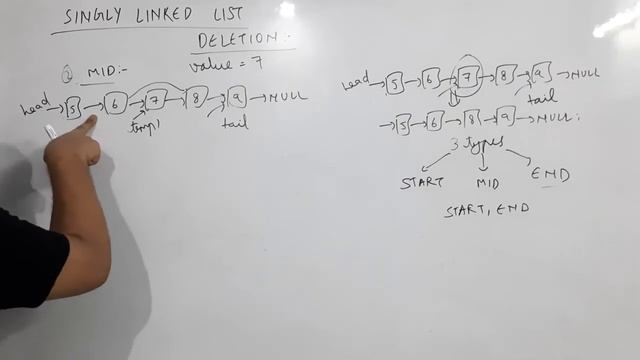 SINGLY LINKED LIST
DELETION:-
② MID:-
value = 7
head → 5 → 6 → 7 → 8 → 9 → NULL
temp1
tail
head → 5 → 6 → 7 → 8 → 9 → NULL
tail
→ 5 → 6 → 8 → 9 → NULL:
3 types
START MID END
START, END